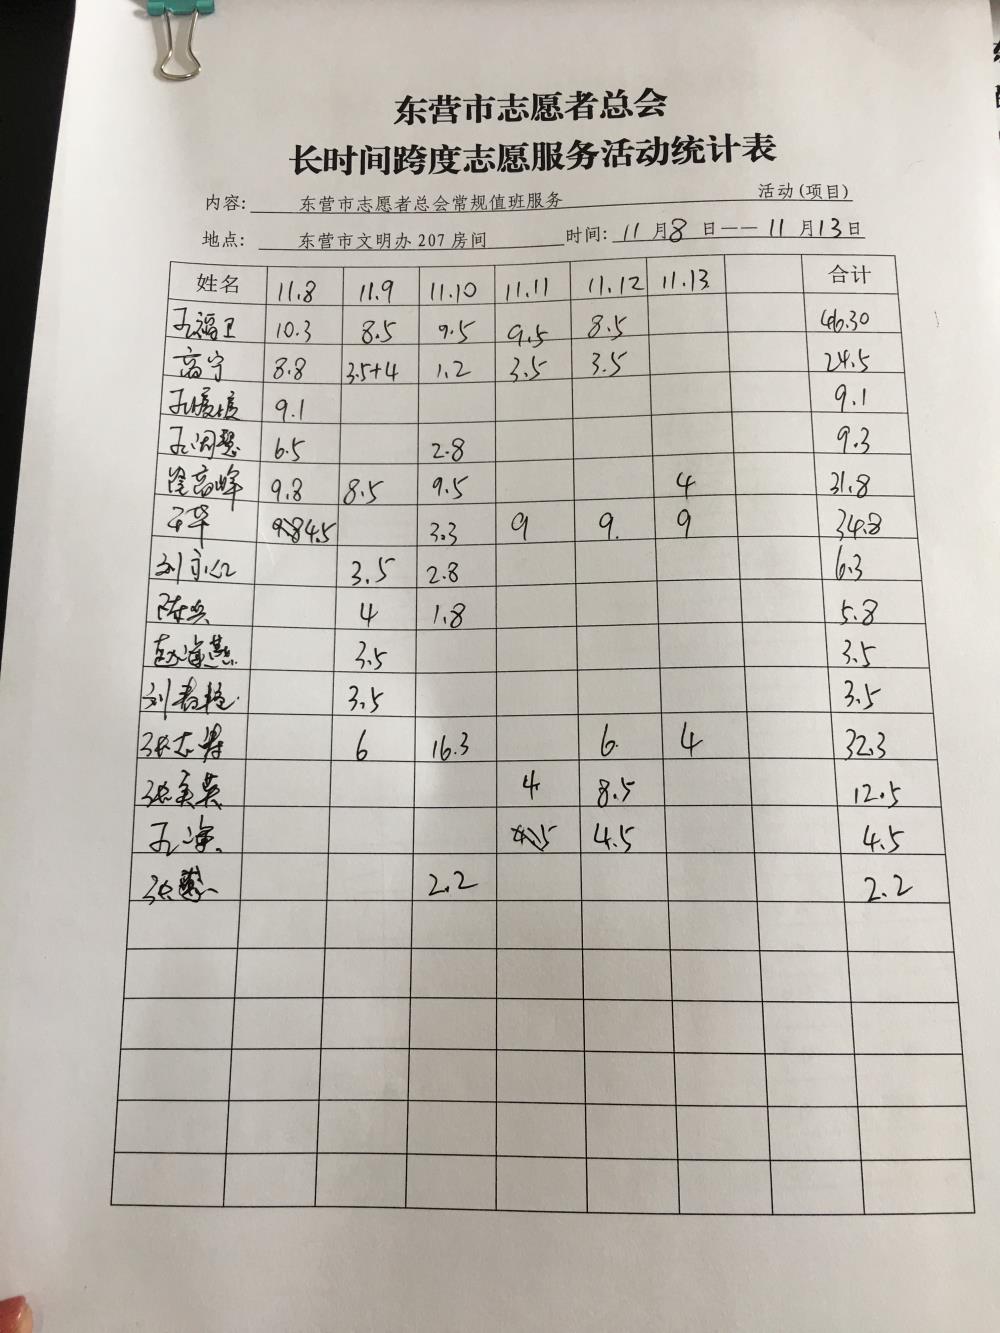 东营市志愿者总会
长时间跨度志愿服务活动统计表
内容: 东营市志愿者总会常规值班服务 活动(项目)
地点: 东营市文明办 207 房间 时间: 11 月 8 日—— 11 月 13 日
姓名 11.8 11.9 11.10 11.11 11.12 11.13 合计
孔福卫 10.3 8.5 9.5 9.5 8.5 46.30
高宁 8.8 3.5+4 1.2 3.5 3.5 24.5
9.1 9.1
6.5 2.8 9.3
高峰 9.8 8.5 9.5 4 31.8
华 4.5 3.3 9 9. 9 34.8
刘 3.5 2.8 6.3
陈 4 1.8 5.8
赵海燕 3.5 3.5
刘 3.5 3.5
张志 6 16.3 6. 4 32.3
张美英 4 8.5 12.5
孔 4.5 4.5
张慧 2.2 2.2